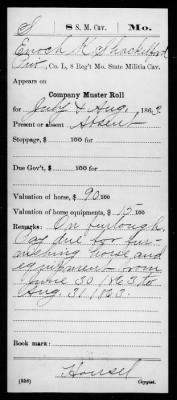 S | 8 S. M. Cav. | Mo.
Enoch K. Shackelford
Pvt, Co. L, 8 Reg't Mo. State Militia Cav.
Appears on
Company Muster Roll
for July & Aug, 1863
Present or absent Absent
Stoppage, $ 100 for
Due Gov't, $ 100 for
Valuation of horse, $ 90 100
Valuation of horse equipments, $ 15 100
Remarks: On furlough.
Pay due for fur-
nishing horse and
equipment from
June 30 1863 to
Aug. 31/1863.
Book mark:
Housel
(358) Copyist.